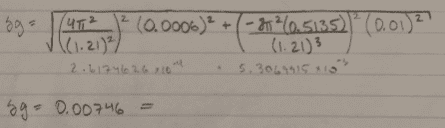 δg = √((4π²/(1.21)²)² (0.0006)² + (-8π²(0.5135)/(1.21)³)² (0.01)²)
2.6174626×10⁻⁴ + 5.3069915×10⁻³
δg = 0.00746 =